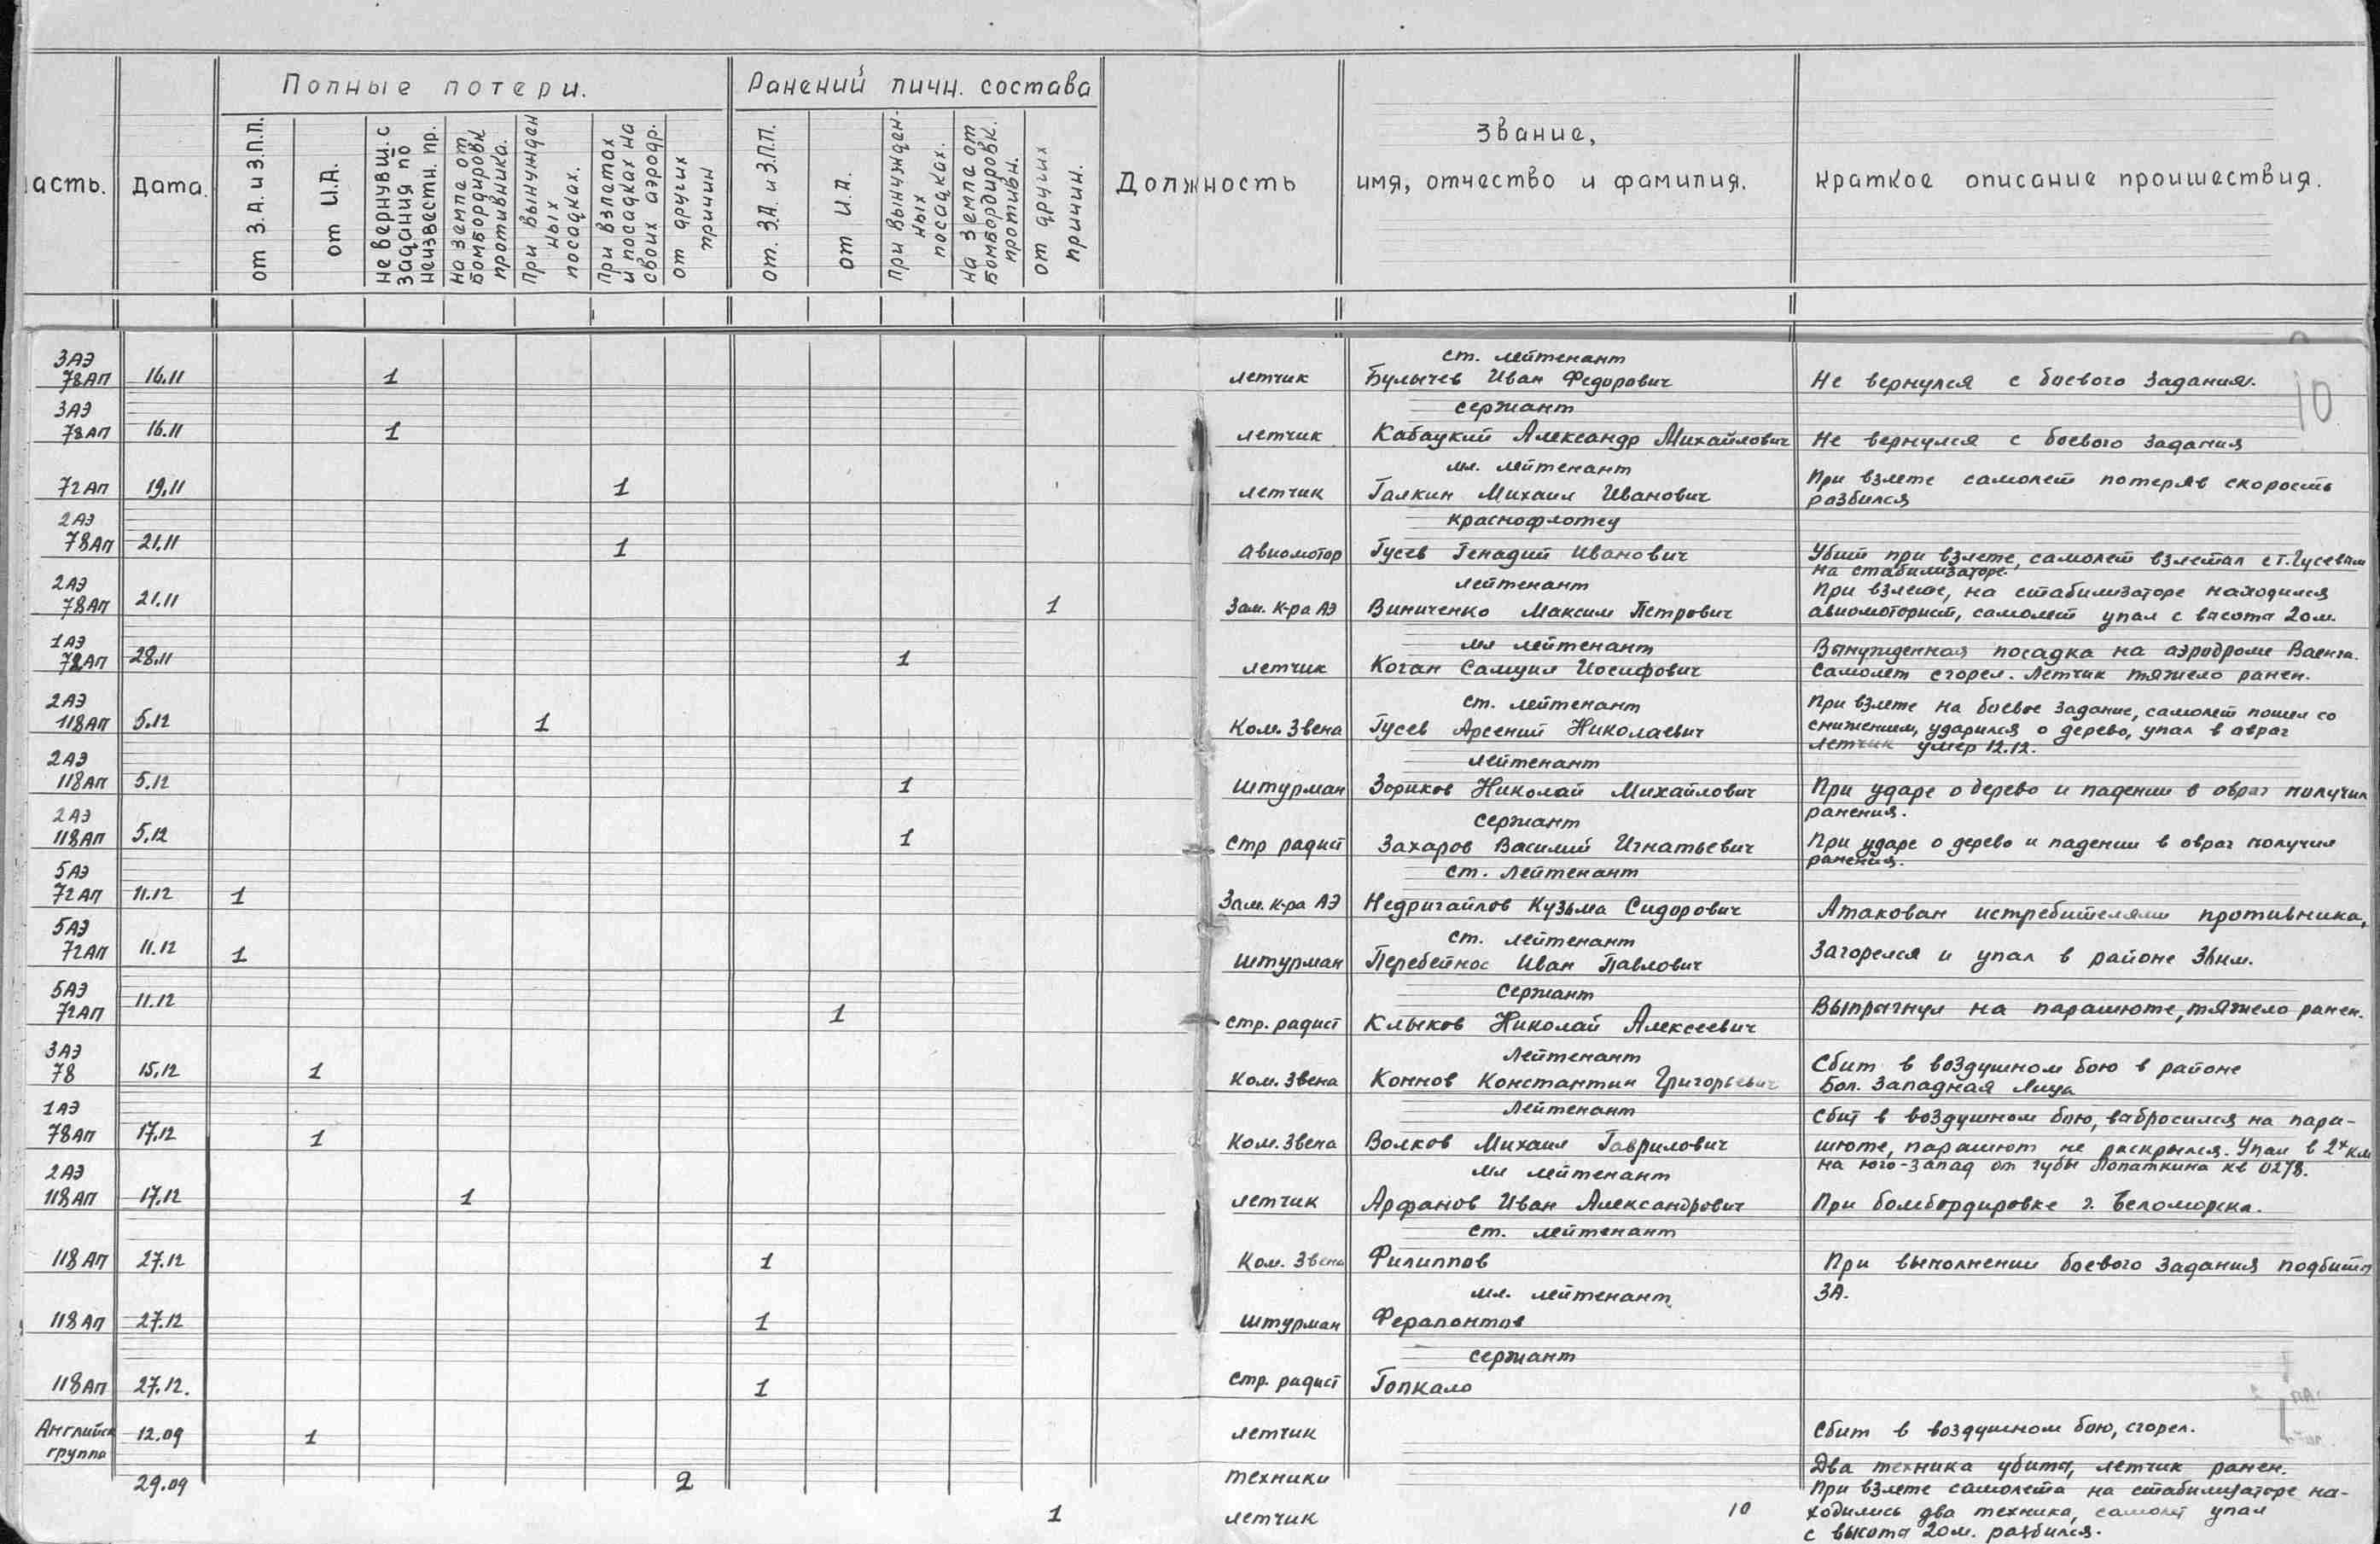 Полные потери.
Ранений личн. состава
асть.
Дата.
от З.А. и З.П.П.
от И.А.
не вернувш. с задания по неизвестн. пр.
на земле от бомбордировк противника.
при вынужден ных посадках.
При взлетах и посадках на своих аэродр.
от других причин
от. З.А. и З.П.П.
от И.А.
при вынужден- ных посадках.
на земле от бомбордировк. противн.
от других причин.
Должность
Звание,
имя, отчество и фамилия.
Краткое описание проишествия.
10
3АЭ ст. лейтенант
78АП 16.11 1 летчик Булычев Иван Федорович Не вернулся с боевого задания.
3АЭ сержант
78АП 16.11 1 летчик Кабацкий Александр Михайлович Не вернулся с боевого задания
мл. лейтенант
72АП 19.11 1 летчик Галкин Михаил Иванович При взлете самолет потеряв скорость
разбился
2АЭ краснофлотец
78АП 21.11 1 Авиомотор Гусев Генадий Иванович Убит при взлете, самолет взлетал с т. Гусевым
на стабилизаторе.
2АЭ лейтенант При взлете, на стабилизаторе находился
78АП 21.11 1 Зам. К-ра АЭ Виниченко Максим Петрович авиомоторист, самолет упал с васота 20м.
1АЭ мл лейтенант Вынужденная посадка на аэродроме Ваенга.
78АП 28.11 1 летчик Коган Самуил Иосифович Самолет сгорел. Летчик тяжело ранен.
2АЭ ст. лейтенант При взлете на боевое задание, самолет пошел со
118АП 5.12 1 Ком. Звена Гусев Арсений Николаевич снижением, ударился о дерево, упал в авраг
летчик умер 12.12.
2АЭ лейтенант
118АП 5.12 1 Штурман Зориков Николай Михайлович При ударе о дерево и падении в овраг получил
ранения.
2АЭ сержант
118АП 5.12 1 Стр радист Захаров Василий Игнатьевич При ударе о дерево и падении в овраг получил
ранения.
5АЭ ст. лейтенант
72АП 11.12 1 Зам. к-ра АЭ Недригайлов Кузьма Сидорович Атакован истребителями противника,
5АЭ ст. лейтенант
72АП 11.12 1 Штурман Перебейнос Иван Павлович Загорелся и упал в районе
5АЭ Сержант
72АП 11.12 1 Стр. радист Клыков Николай Алексеевич Выпрагнул на парашюте, тяжело ранен.
3АЭ Лейтенант
78 15.12 1 Ком. Звена Коннов Константин Григорьевич Сбит в воздушном бою в районе
Бол. Западная Лица
1АЭ Лейтенант Сбит в воздушном бою, вабросился на пара-
78АП 17.12 1 Ком. Звена Волков Михаил Гаврилович шюте, парашют не раскрылся. Упал в 2х км
на юго-запад от губы Лопаткина кв 0278.
2АЭ мл лейтенант
118АП 17.12 1 летчик Арфанов Иван Александрович При бомбордировке г. Беломорска.
ст. лейтенант
118АП 27.12 1 Ком. Звена Филиппов При выполнении боевого задания подбит
мл. лейтенант ЗА.
118АП 27.12 1 Штурман Ферапонтов
сержант
118АП 27.12. 1 Стр. радист Гопкало
Английск 12.09 1 летчик Сбит в воздушном бою, сгорел.
группа
29.09 2 техники Два техника убиты, летчик ранен.
При взлете самолета на стабилизаторе на-
1 летчик 10 ходились два техника, самолет упал
с высота 20м. разбился.